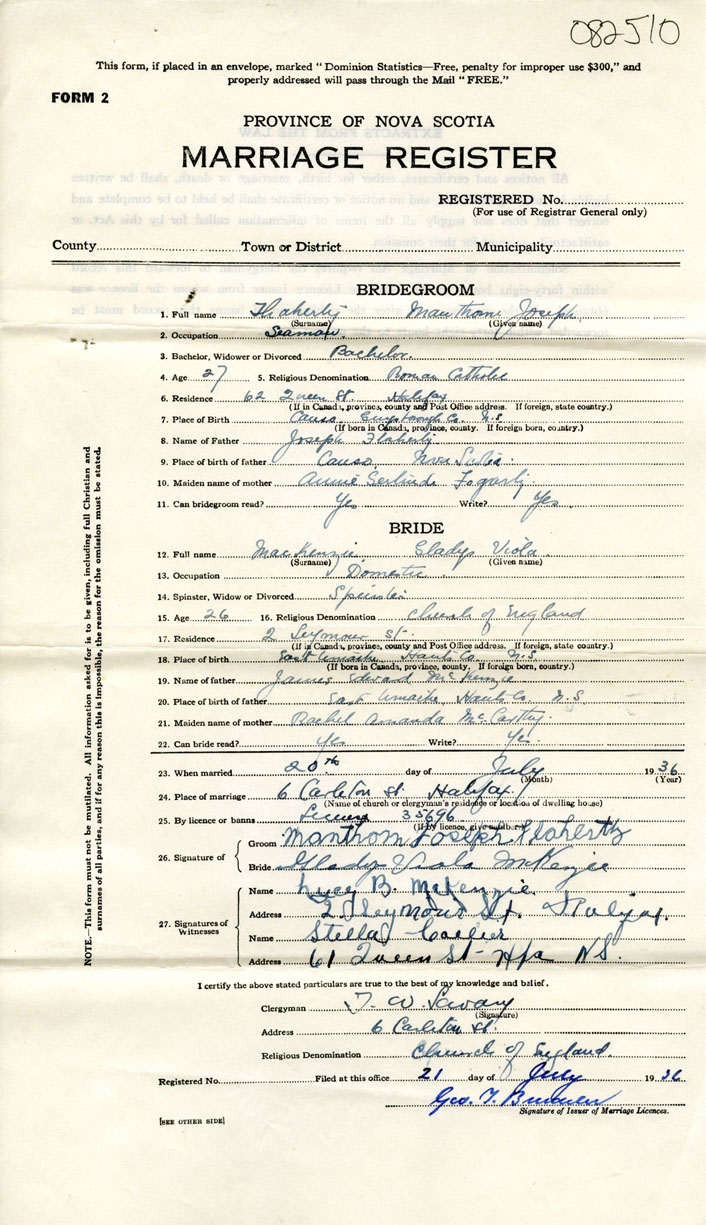 082510
This form, if placed in an envelope, marked " Dominion Statistics—Free, penalty for improper use $300," and
properly addressed will pass through the Mail " FREE."
FORM 2
PROVINCE OF NOVA SCOTIA
MARRIAGE REGISTER
REGISTERED No.
(For use of Registrar General only)
County Town or District Municipality
BRIDEGROOM
1. Full name Flaherty Manthom Joseph
(Surname) (Given name)
2. Occupation Seaman
3. Bachelor, Widower or Divorced Bachelor
4. Age 27 5. Religious Denomination Roman Catholic
6. Residence 62 Queen St. Halifax
(If in Canada, province, county and Post Office address. If foreign, state country.)
7. Place of Birth Canso Co. N.S.
(If born in Canada, province, county. If foreign born, country.)
8. Name of Father Joseph Flaherty
9. Place of birth of father Canso, Nova Scotia.
10. Maiden name of mother Annie Gertrude Fogarty.
11. Can bridegroom read? Yes Write? Yes
BRIDE
12. Full name MacKenzie Gladys Viola
(Surname) (Given name)
13. Occupation Domestic
14. Spinster, Widow or Divorced Spinster
15. Age 26 16. Religious Denomination Church of England
17. Residence 2 Seymour St.
(If in Canada, province, county and Post Office address. If foreign, state country.)
18. Place of birth East Uniacke, Hants Co. N.S.
(If born in Canada, province, county. If foreign born, country.)
19. Name of father James Edward McKenzie
20. Place of birth of father East Uniacke, Hants Co N.S
21. Maiden name of mother Rachel Amanda McCarthy
22. Can bride read? Yes Write? Yes.
23. When married 20th day of July 1936
(Month) (Year)
24. Place of marriage 6 Carleton St. Halifax.
(Name of church or clergyman's residence or location of dwelling house)
25. By licence or banns License 35696
(If by licence, give number)
26. Signature of Groom Manthom Joseph Flaherty
Bride Gladys Viola McKenzie
27. Signatures of Witnesses
Name Lucy B. McKenzie.
Address 2 Seymour St. Halifax.
Name Stella
Address 61 Queen St- Hfx N.S.
I certify the above stated particulars are true to the best of my knowledge and belief.
Clergyman T. W. Savary
(Signature)
Address 6 Carleton St.
Religious Denomination Church of England.
Registered No. Filed at this office 21 day of July 1936
Geo. T.
Signature of Issuer of Marriage Licences.
[SEE OTHER SIDE]
NOTE.—This form must not be mutilated. All information asked for is to be given, including full Christian and
surnames of all parties, and if for any reason this is impossible, the reason for the omission must be stated.